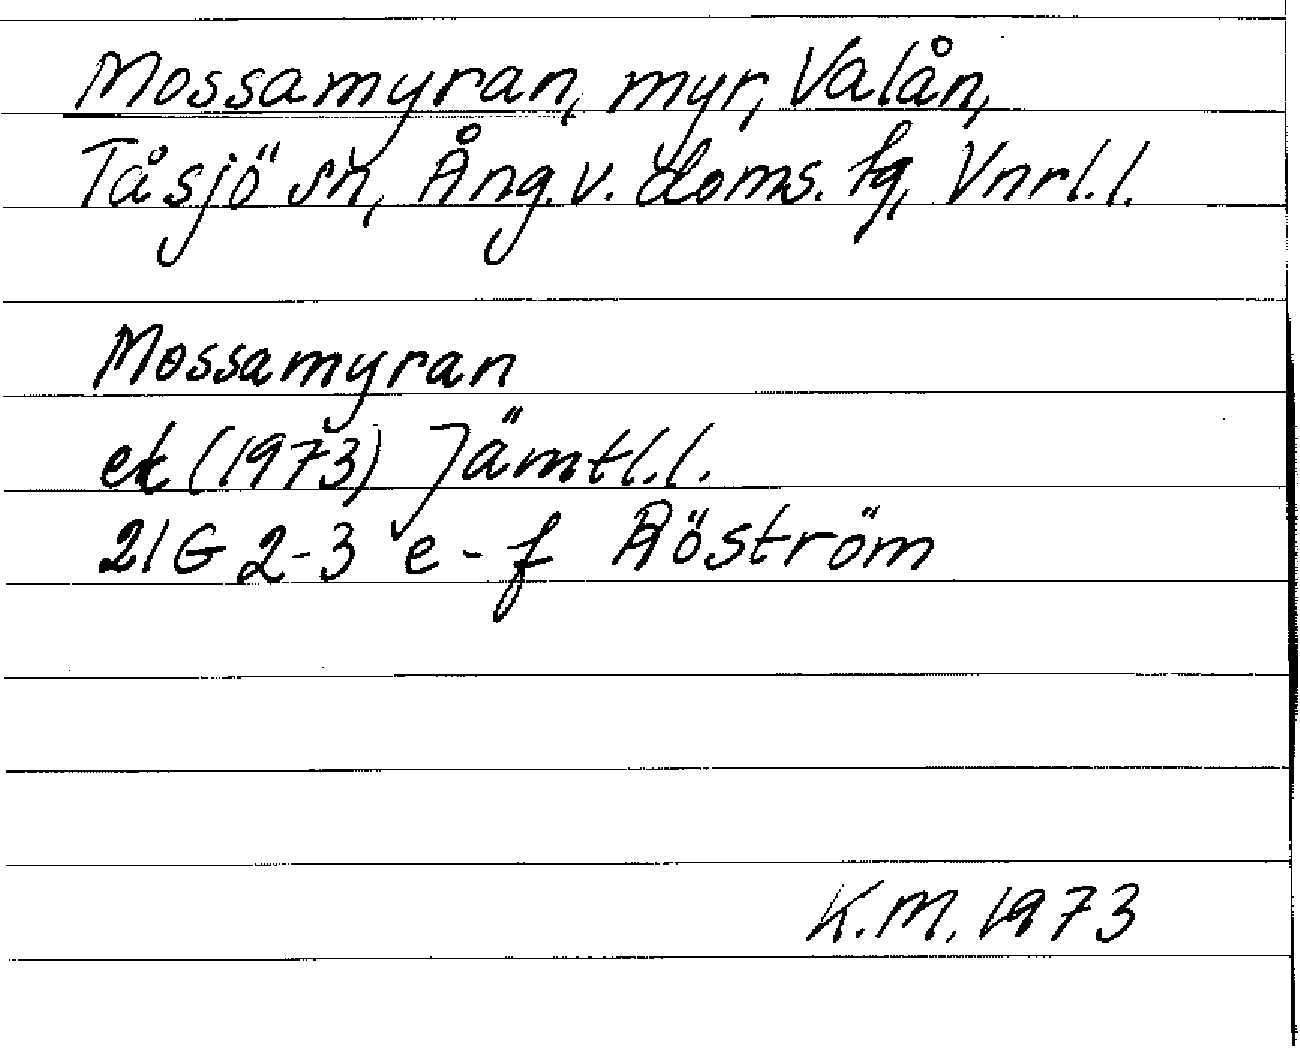 Mossamyran, myr, Valån,
Tåsjö sn, Ång. v. doms. tg, Vnrl. l.
Mossamyran
ek (1973) Jämtl. l.
21G 2-3 e-f Röström
K.M. 1973